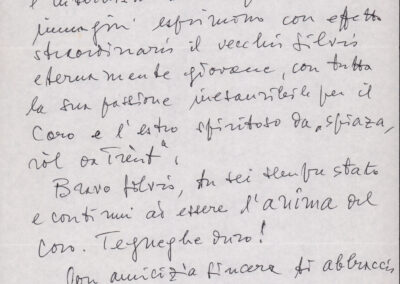 immagini esprimono con effetto
straordinario il vecchio Silvio
eternamente giovane, con tutta
la sua passione inesauribile per il
Coro e l'estro spiritoso da „spiaza,
ròl da Trènt“!
Bravo Silvio, tu sei sempre stato
e continui ad essere l'anima del
coro. Tegneghe duro!
Con amicizia sincera ti abbraccio